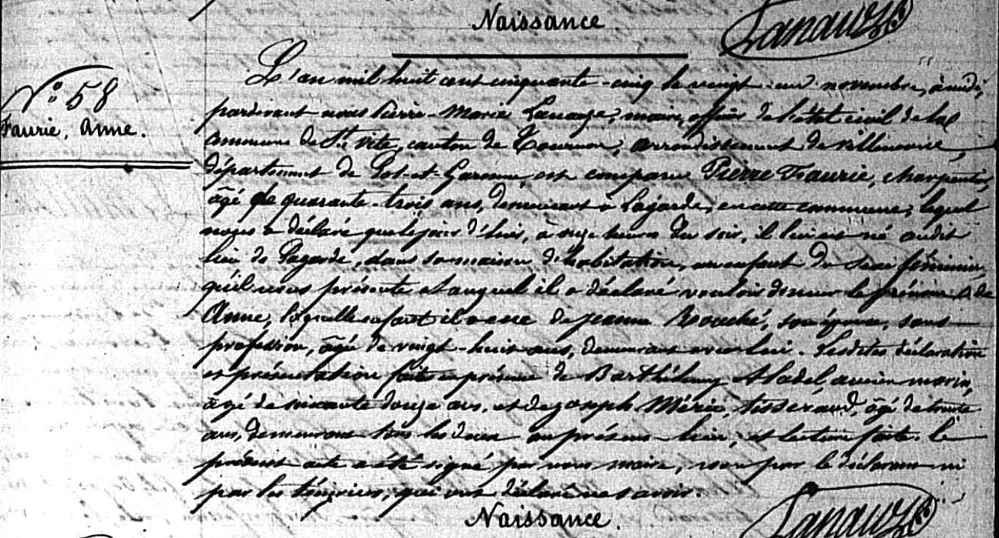 Naissance
N.o 58
Faurie, Anne.
L'an mil huit cent cinquante-cinq le vingt-un novembre, à midi,
pardevant nous Pierre-Marie Lanauze, maire, officier de l'état civil de la
commune de St Vite, canton de Tournon, arrondissement de Villeneuve,
département de Lot-et-Garonne, est comparu Pierre Faurie, charpentier,
âgé de quarante-trois ans, demeurant à Lagarde, en cette commune, lequel
nous a déclaré que le jour d'hier, à onze heures du soir, il lui est né audit
lieu de Lagarde, dans sa maison d'habitation, un enfant du sexe féminin,
qu'il nous présente et auquel il a déclaré vouloir donner le prénom de
Anne, laquelle enfant il a eue de Jeanne Bouché, son épouse, sans
profession, âgée de vingt-huit ans, demeurant avec lui. Lesdites déclaration
et présentation faites en présence de Barthélemy Aladel ancien marin,
âgé de soixante douze ans, et de Joseph Mérie, tisserand, âgé de trente
ans, demeurant tous les deux au présent lieu, et lecture faite le
présent acte a été signé par nous maire, non par le déclarant ni
par les témoins, qui ont déclaré ne savoir.
Lanauze
Naissance.
Lanauze